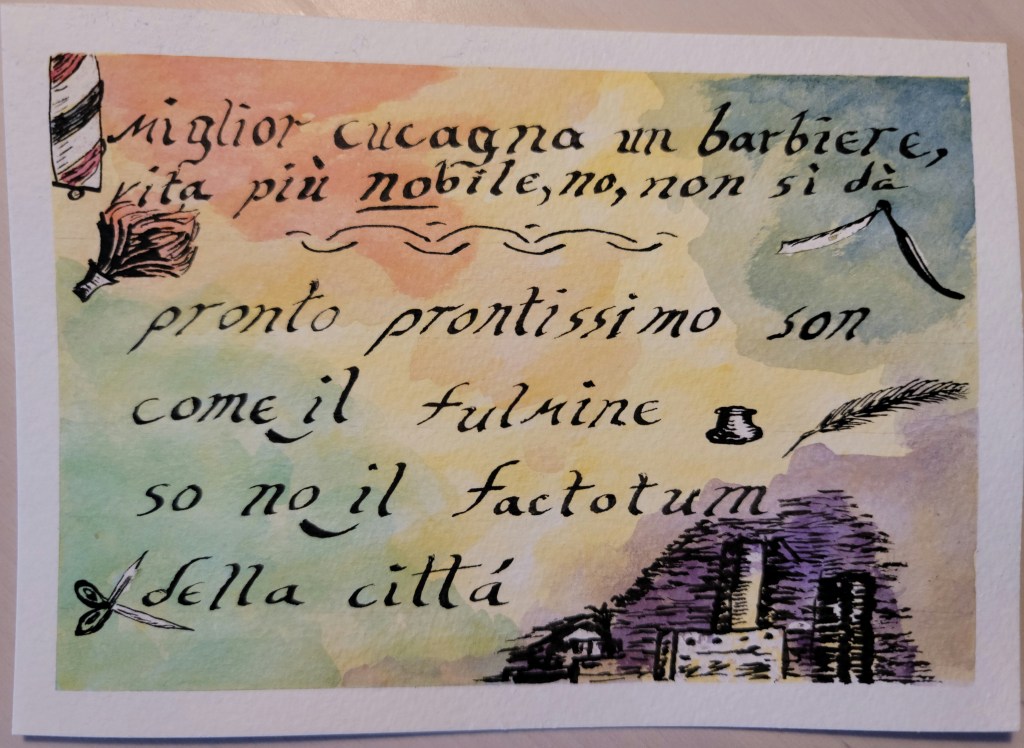 miglior cucagna un barbiere,
vita più nobile, no, non si dà
pronto prontissimo son
come il fulmine
so no il factotum
della cittá